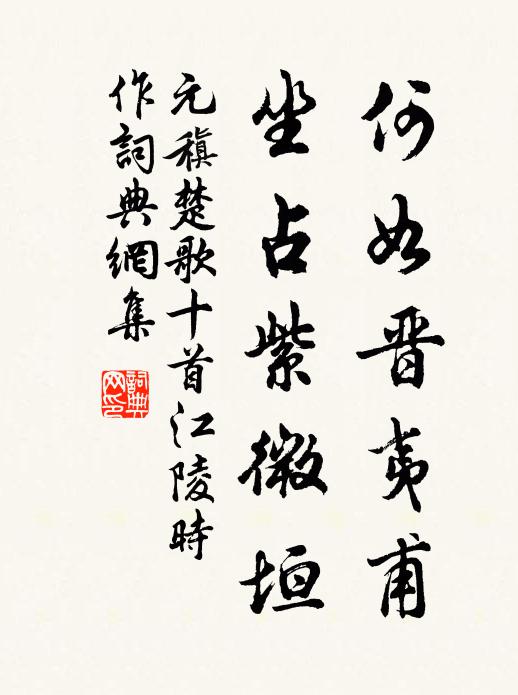 何如晋夷甫
坐占紫微垣
元稹楚歌十首江陵時
作詞典網集
詞典
网印